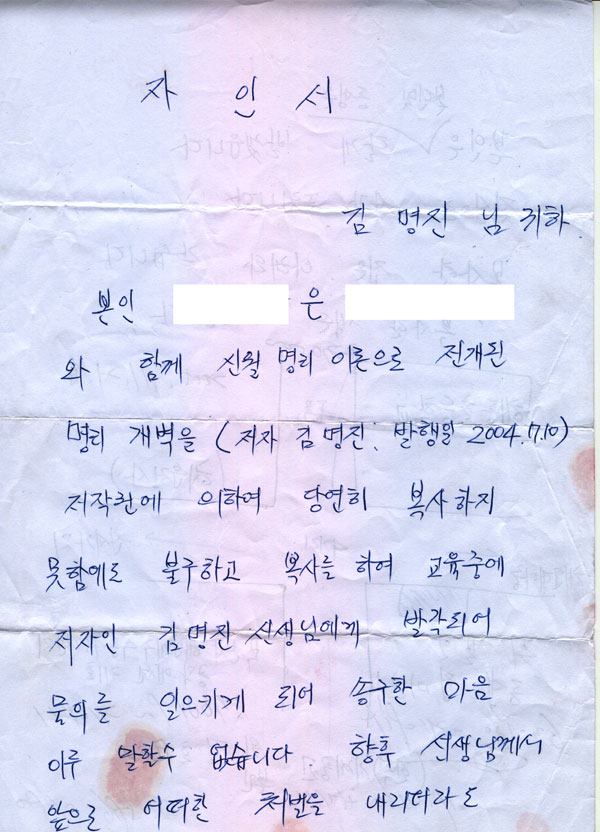 자 인 서
김 명진 님 귀하.
본인 은
와 함께 신월 명리 이론으로 전개된
명리 개벽을 (저자 김명진. 발행일 2004.7.10)
저작권에 의하여 당연히 복사하지
못함에도 불구하고 복사를 하여 교육중에
저자인 김명진 선생님에게 발각되어
물의를 일으키게 되어 송구한 마음
이루 말할수 없습니다. 향후 선생님께서
앞으로 어떠한 처벌을 내리더라도